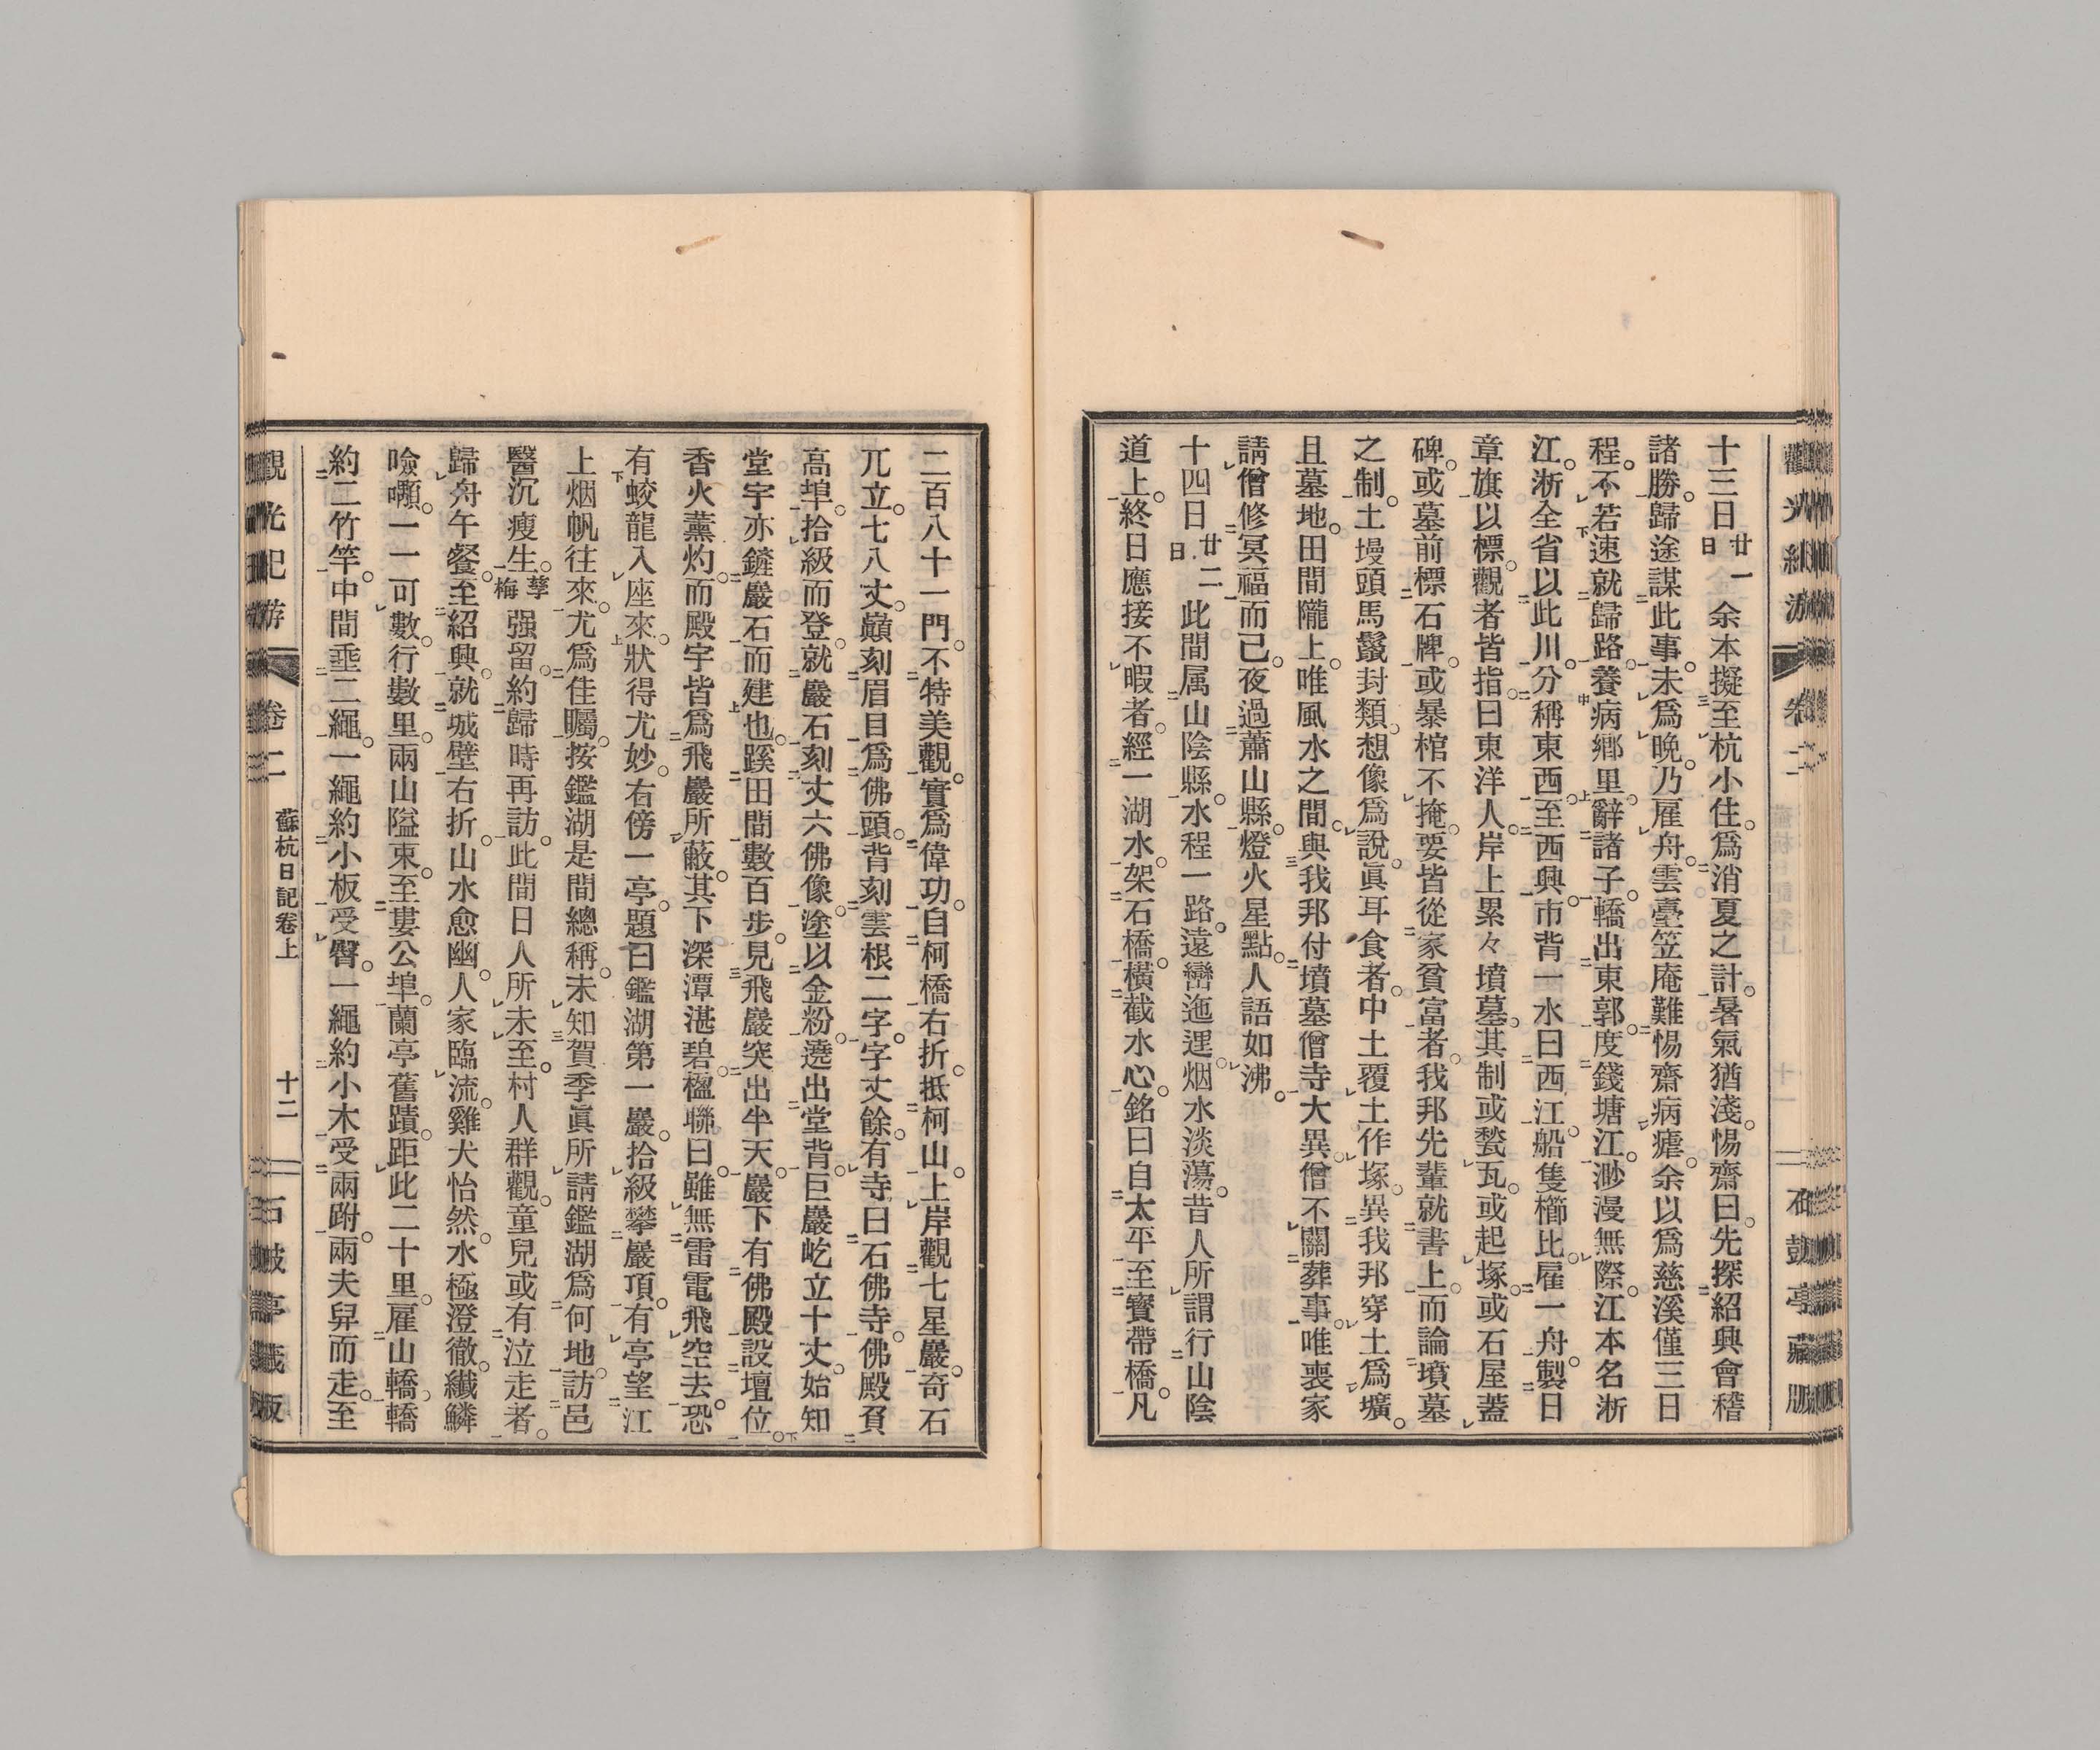 十三日廿一日余本擬至杭小住。爲消夏之計。暑氣猶淺。惕齋曰。先探紹興會稽
諸勝。歸途謀此事。未爲晚。乃雇舟。雲臺笠庵難惕齋病瘧。余以爲慈溪僅三日
程。不若速就歸路。養病鄉里。辭諸子。轎出東郭。度錢塘江。渺漫無際。江本名浙
江。浙全省以此川。分稱東西。至西興。市背一水曰西江。船隻櫛比。雇一舟。製日
章旗以標。觀者皆指曰東洋人。岸上累々墳墓。其制或甃瓦。或起塚。或石屋蓋
碑。或墓前標石牌。或暴棺不掩。要皆從家貧富者。我邦先輩就書上。而論墳墓
之制。土墁頭馬鬣封類。想像爲說。眞耳食者。中土覆土作塚。異我邦穿土爲壙。
且墓地。田間隴上。唯風水之間。與我邦付墳墓僧寺大異。僧不關葬事。唯喪家
請僧修冥福而已。夜過蕭山縣。燈火星點。人語如沸。
十四日廿二日此間属山陰縣。水程一路。遠巒迤逗。烟水淡蕩。昔人所謂行山陰
道上。終日應接不暇者。經一湖水。架石橋。橫截水心。銘曰自太平至寶帶橋。凡
二百八十一門。不特美觀。實爲偉功。自柯橋右折。抵柯山。上岸觀七星巖。奇石
兀立。七八丈。巔刻眉目爲佛頭。背刻雲根二字。字丈餘。有寺曰石佛寺。佛殿負
高埠。拾級而登。就巖石刻丈六佛像。塗以金粉。遶出堂背。巨巖屹立十丈。始知
堂宇亦鏟巖石而建也。蹊田間數百步。見飛巖突出半天。巖下有佛殿設壇位。
香火薰灼。而殿宇皆爲飛巖所蔽。其下深潭湛碧。楹聯曰。雖無雷電飛空去。恐
有蛟龍入座來。狀得尤妙。右傍一亭。題曰鑑湖第一巖。拾級攀巖頂。有亭望江
上烟帆往來。尤爲佳矚。按鑑湖是間總稱。未知賀季眞所請鑑湖爲何地。訪邑
醫沉瘦生。孳梅强留。約歸時再訪。此間日人所未至。村人群觀。童兒或有泣走者。
歸舟午餐。至紹興。就城壁右折。山水愈幽。人家臨流。雞犬怡然。水極澄徹。纖鱗
噞喁。一一可數。行數里。兩山隘束。至婁公埠。蘭亭舊蹟。距此二十里。雇山轎。轎
約二竹竿。中間垂二繩。一繩約小板受臀。一繩約小木受兩跗。兩夫舁而走。至
觀光紀游
卷二
蘇杭日記卷上
十二
石鼓亭藏版